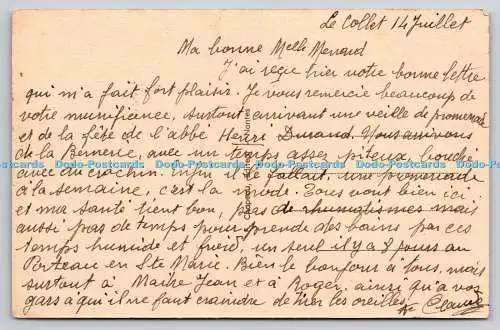 Le Collet 14 Juillet
Ma bonne Melle Menaud
J'ai reçu hier votre bonne lettre
qui m'a fait fort plaisir. Je vous remercie beaucoup de
votre munificence, surtout arrivant une veille de promenade
et de la fête de l'abbé Henri Durand. Nous arrivons
de la Bernerie, avec un temps assez piteux, bouché
avec du crachin. Enfin il le fallait, une promenade
à la semaine, c'est la mode. Tous vont bien ici
et ma santé tient bon, pas de rhumatismes mais
aussi pas de temps pour prendre des bains par ces
temps humide et froid, un seul il y a 8 jours au
Porteau en Ste Marie. Bien le bonjour à tous, mais
surtout à Maître Jean et à Roger, ainsi qu'a vos
gars à qui il ne faut craindre de tirer les oreilles.
Dodo-Postcards Dodo-Postcards Dodo-Postcards Dodo-Postcards